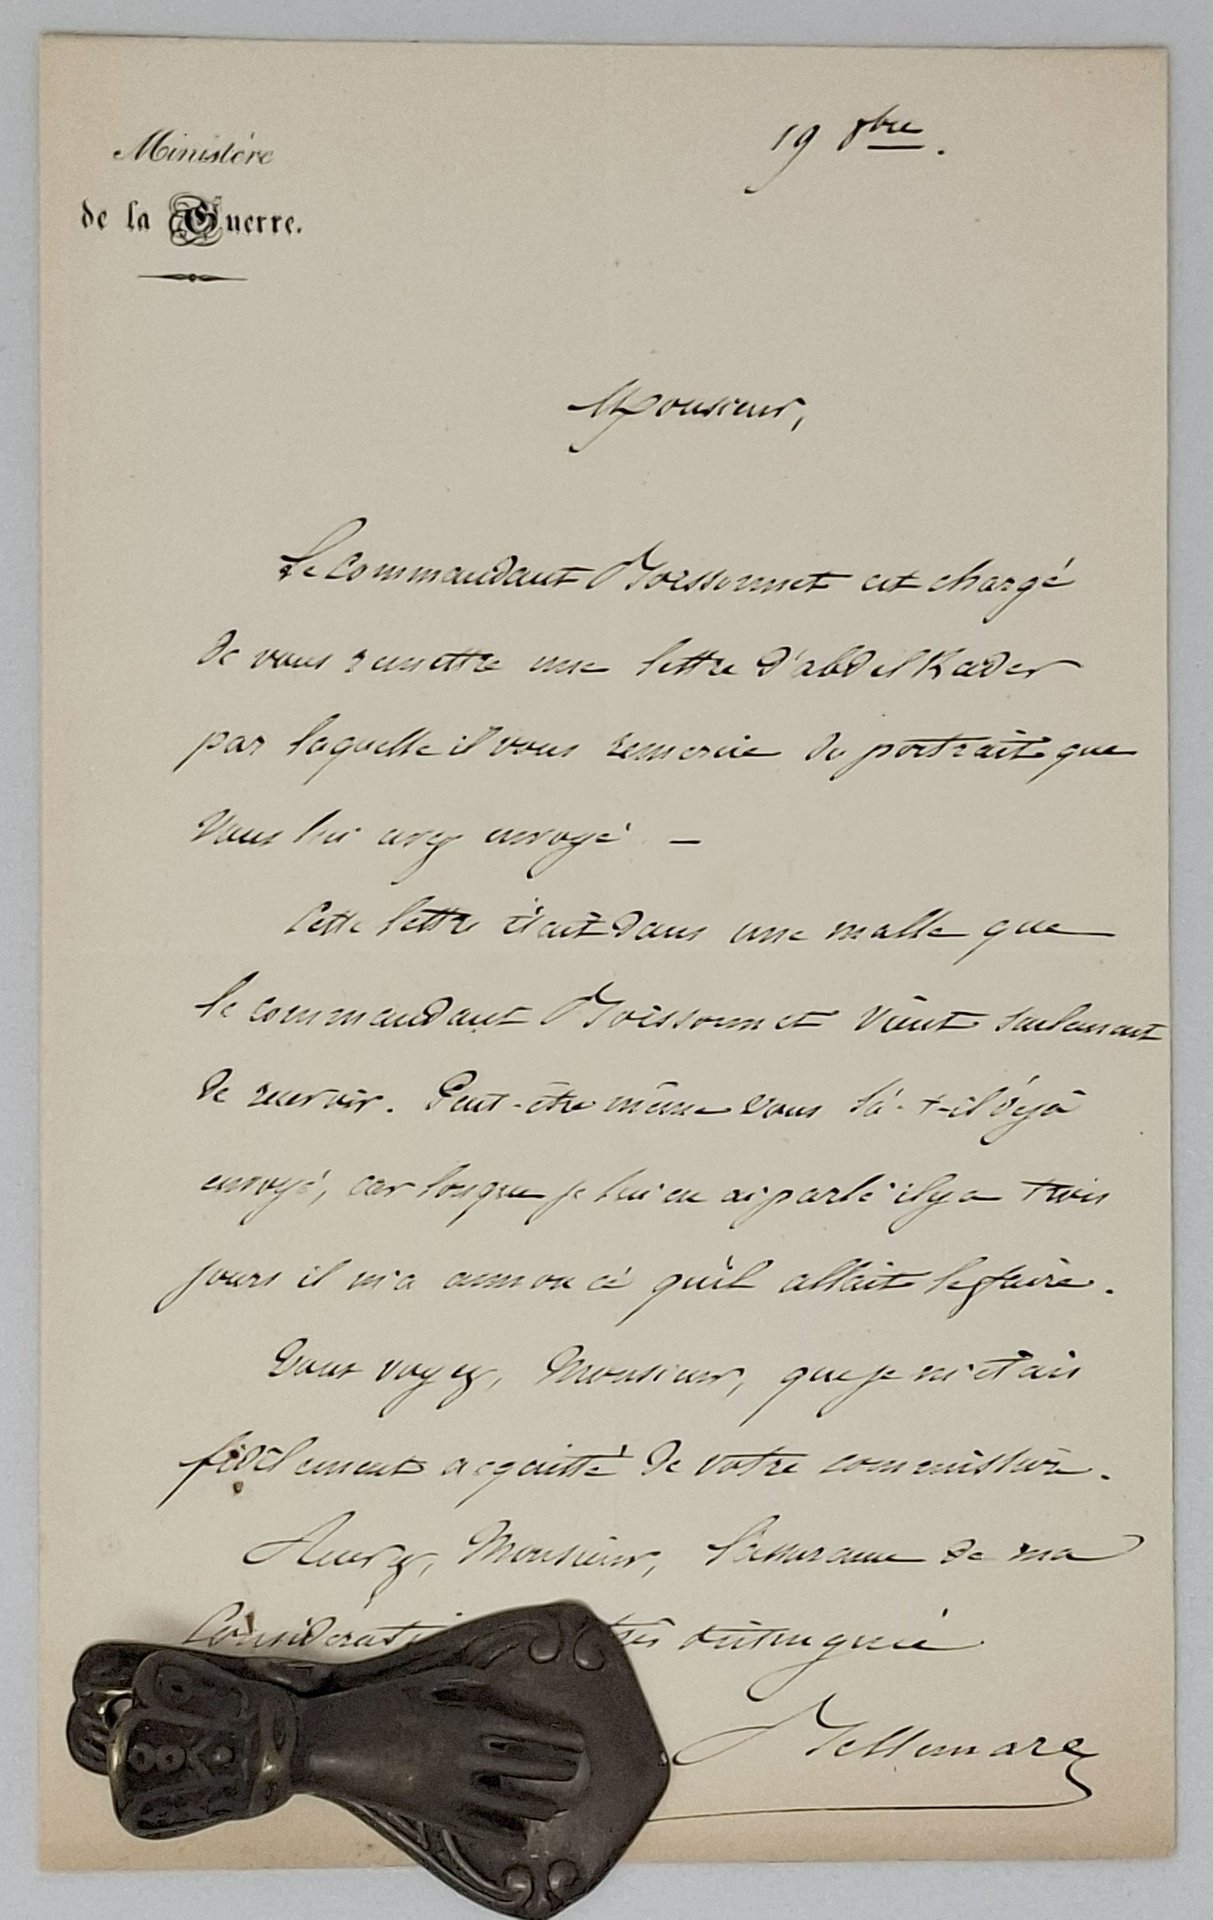 Ministère
de la Guerre.
19 8bre.
Monsieur,
Le Commandant Boissonnet est chargé
de vous remettre une lettre d'abdelKader
par laquelle il vous remercie du portrait que
vous lui avez envoyé –
Cette lettre était dans une malle que
le commandant Boissonnet vient seulement
de recevoir. Peut-être même vous l'a-t-il déjà
envoyé, car lorsque je lui en ai parlé il y a trois
jours il m'a annoncé qu'il allait le faire.
Vous voyez, Monsieur, que je m'étais
fidèlement acquitté de votre commission.
Agréez, Monsieur, l'assurance de ma
Considérati très distinguée
Bellemare